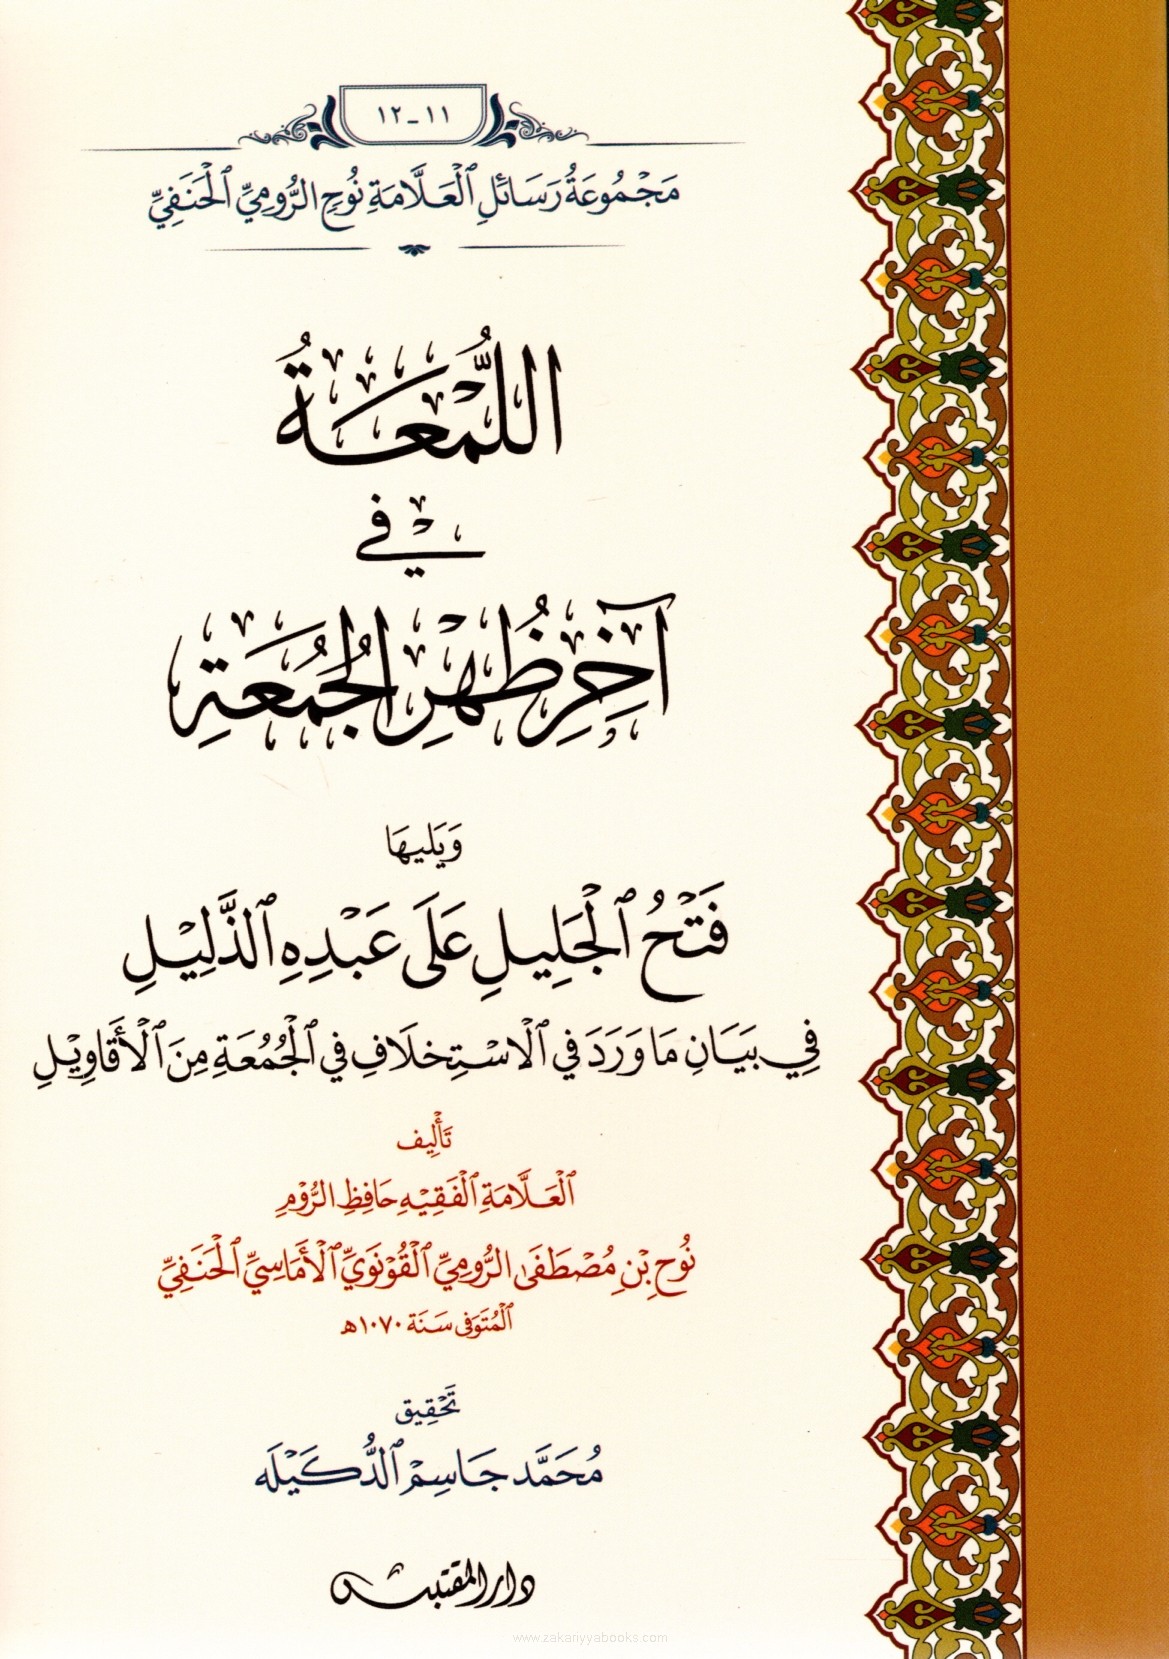 ١١-١٢
مَجْمُوعَةُ رَسَائِلِ ٱلْعَلَّامَةِ نُوحِ الرُّومِيِّ ٱلْحَنَفِيِّ
اللُّمْعَةُ
فِي
آخِرِ ظُهْرِ الجُمُعَةِ
وَيَلِيهَا
فَتْحُ ٱلْجَلِيلِ عَلَى عَبْدِهِ ٱلذَّلِيْلِ
فِي بَيَانِ مَا وَرَدَ فِي ٱلْاسْتِخْلَافِ فِي ٱلْجُمُعَةِ مِنَ ٱلْأَقَاوِيْلِ
تَأْلِيف
ٱلْعَلَّامَةِ ٱلْفَقِيْهِ حَافِظِ الرُّوْمِ
نُوْحِ بْنِ مُصْطَفَى الرُّومِيِّ ٱلْقُوْنَوِيِّ ٱلْأَمَاسِيِّ ٱلْحَنَفِيِّ
ٱلْمُتَوَفَى سَنَة ١٠٧٠هـ
تَحْقِيق
مُحَمَّد جَاسِمْ ٱلدُّكَيْلَه
دار المقتبس
www.zakariyyabooks.com